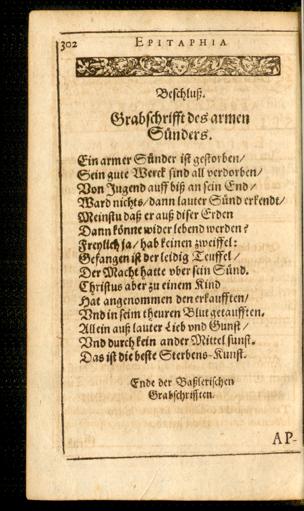 302 EPITAPHIA
Beschluß.
Grabschrifft des armen
Sünders.
Ein armer Sünder ist gestorben/
Sein gute Werck sind all verdorben/
Von Jugend auff biß an sein End/
Ward nichts/ dann lauter Sünd erkendt/
Meinstu daß er auß diser Erden
Dann könnte wider lebend werden?
Freylich ja/ hab keinen zweiffel:
Gefangen ist der leidig Teuffel/
Der Macht hatte vber sein Sünd.
Christus aber zu einem Kind
Hat angenommen den erkaufften/
Vnd in seim theuren Blut getaufften.
Allein auß lauter Lieb vnd Gunst/
Vnd durch kein ander Mittel sunst.
Das ist die beste Sterbens-Kunst.
Ende der Baßlerischen
Grabschrifften.
AP-